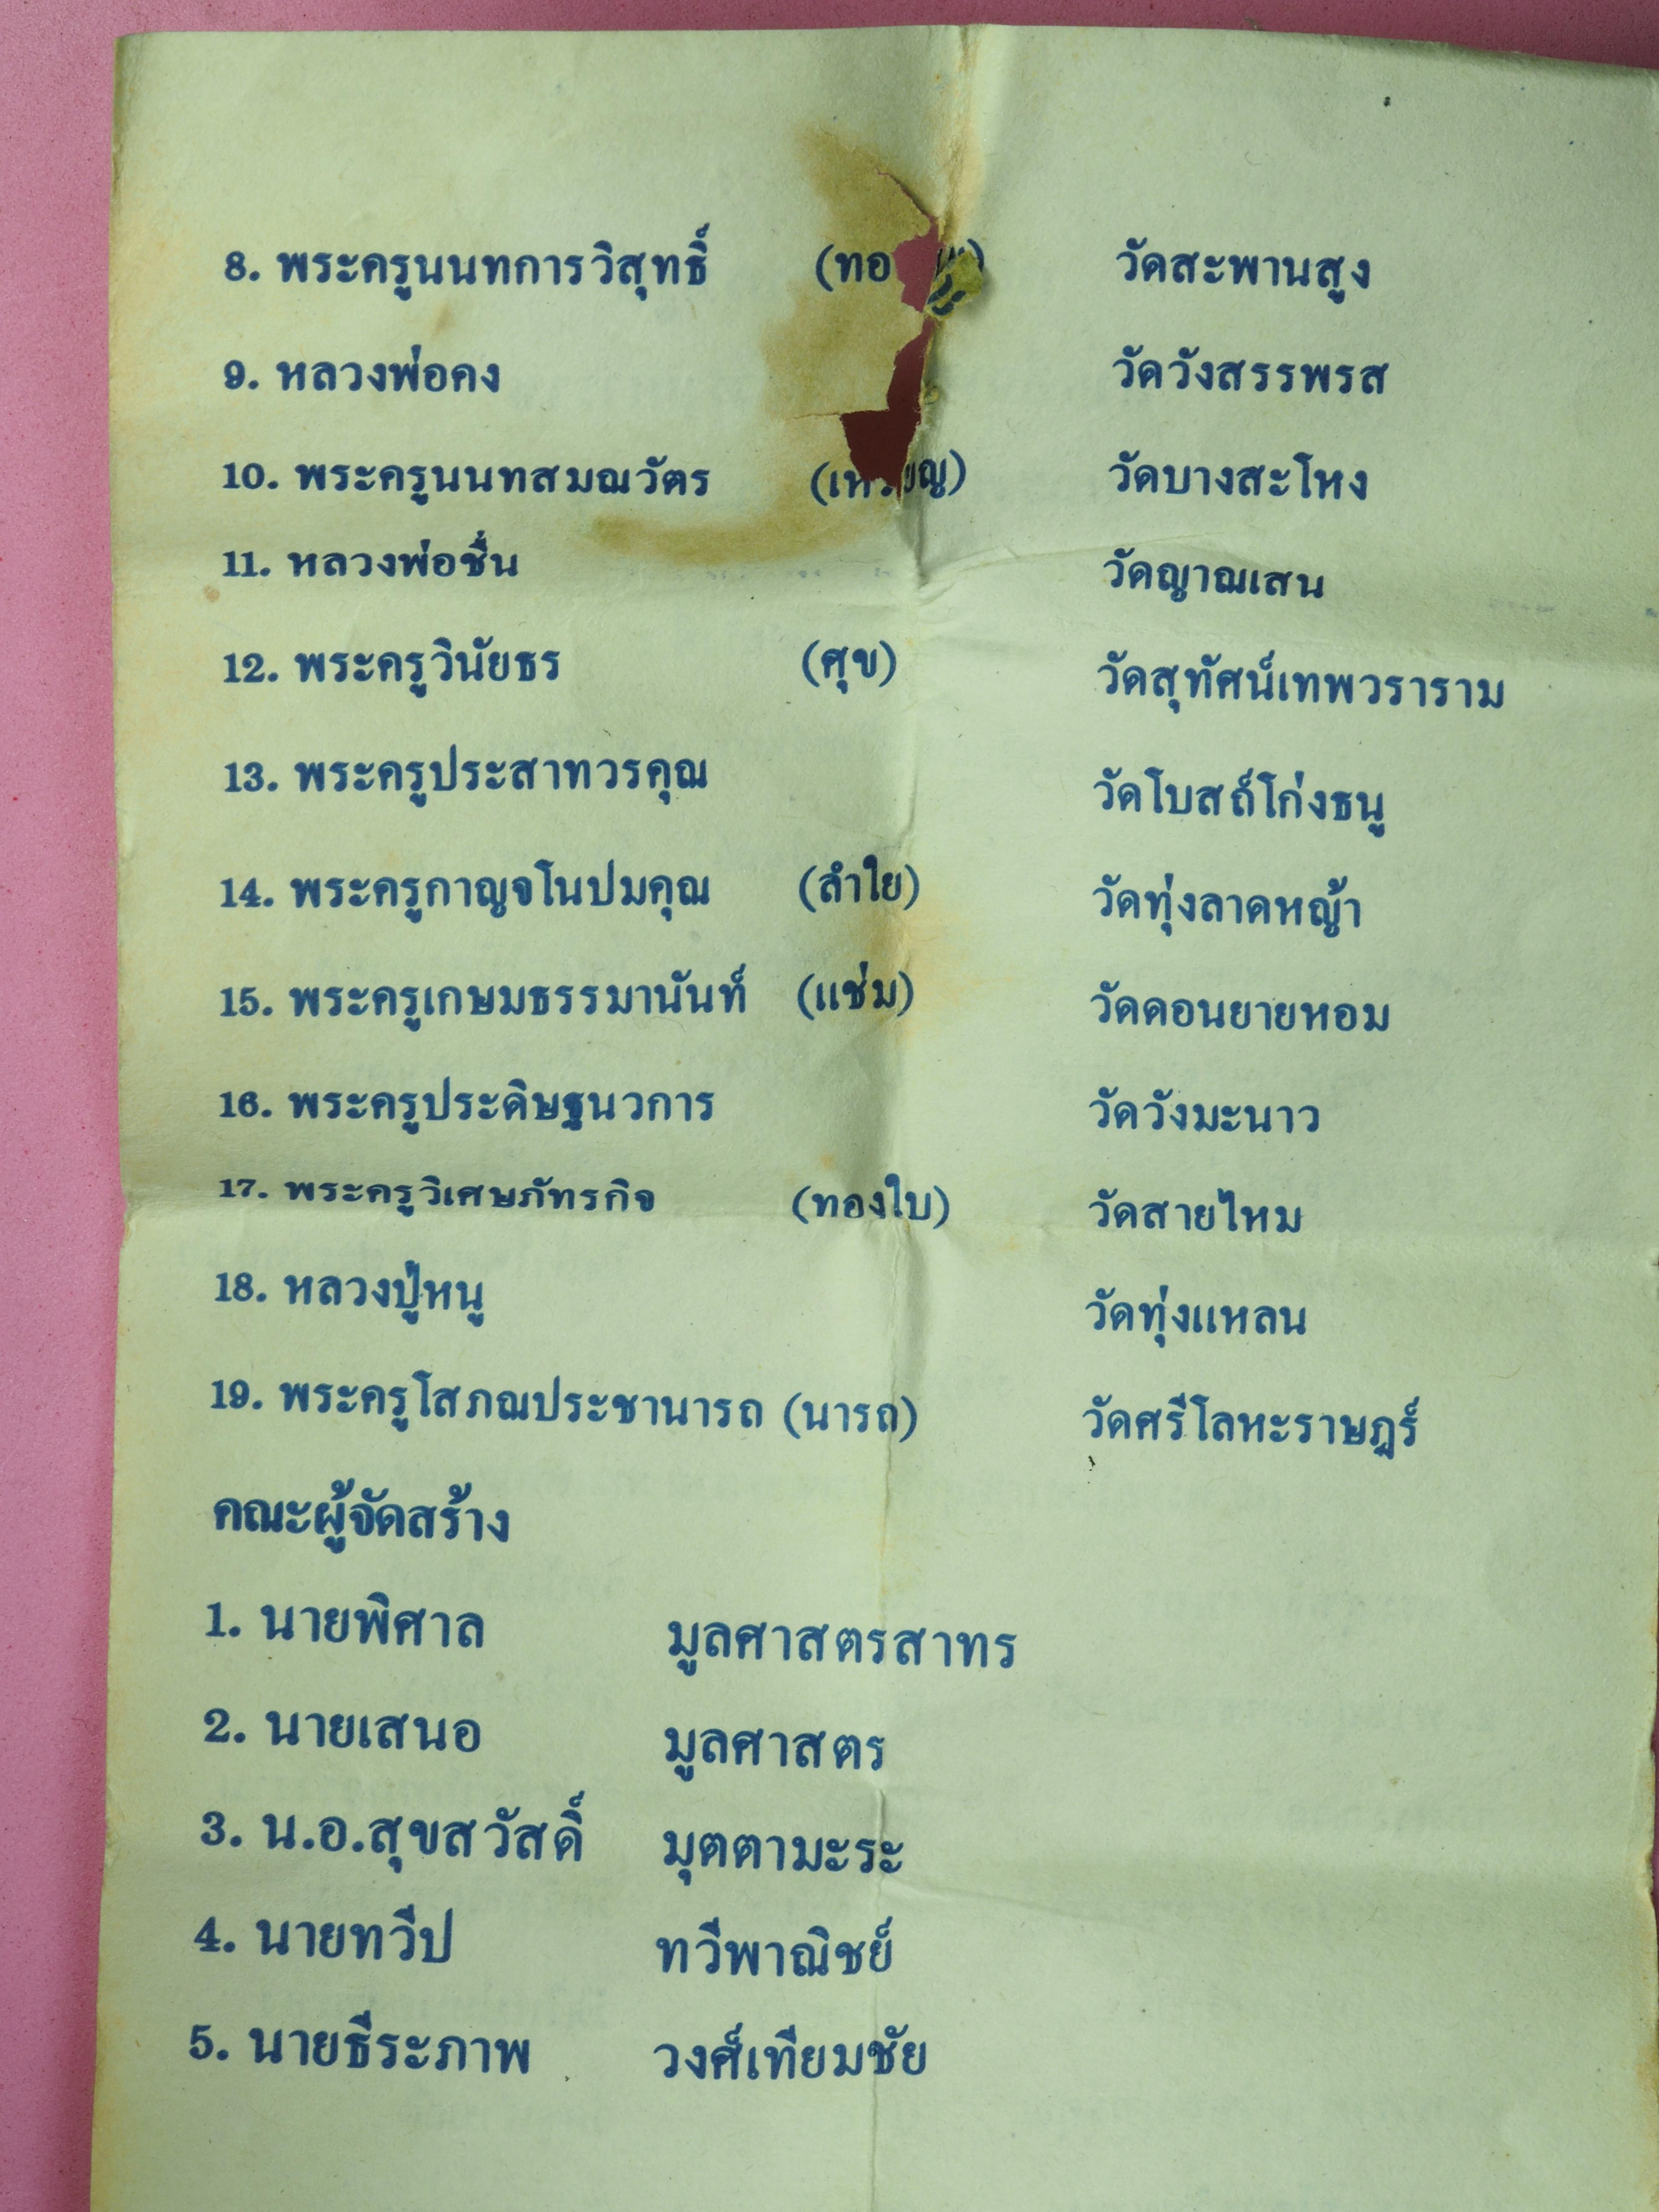 8. พระครูนนทการวิสุทธิ์ วัดสะพานสูง
9. หลวงพ่อคง วัดวังสรรพรส
10. พระครูนนทสมณวัตร วัดบางสะโหง
11. หลวงพ่อชื่น วัดญาณเสน
12. พระครูวินัยธร (ศุข) วัดสุทัศน์เทพวราราม
13. พระครูประสาทวรคุณ วัดโบสถ์โก่งธนู
14. พระครูกาญจโนปมคุณ (ลำใย) วัดทุ่งลาดหญ้า
15. พระครูเกษมธรรมานันท์ (แช่ม) วัดดอนยายหอม
16. พระครูประดิษฐนวการ วัดวังมะนาว
17. พระครูวิเศษภัทรกิจ (ทองใบ) วัดสายไหม
18. หลวงปู่หนู วัดทุ่งแหลน
19. พระครูโสภณประชานารถ (นารถ) วัดศรีโลหะราษฎร์
คณะผู้จัดสร้าง
1. นายพิศาล มูลศาสตรสาทร
2. นายเสนอ มูลศาสตร
3. น.อ.สุขสวัสดิ์ มุตตามะระ
4. นายทวีป ทวีพาณิชย์
5. นายธีระภาพ วงศ์เทียมชัย